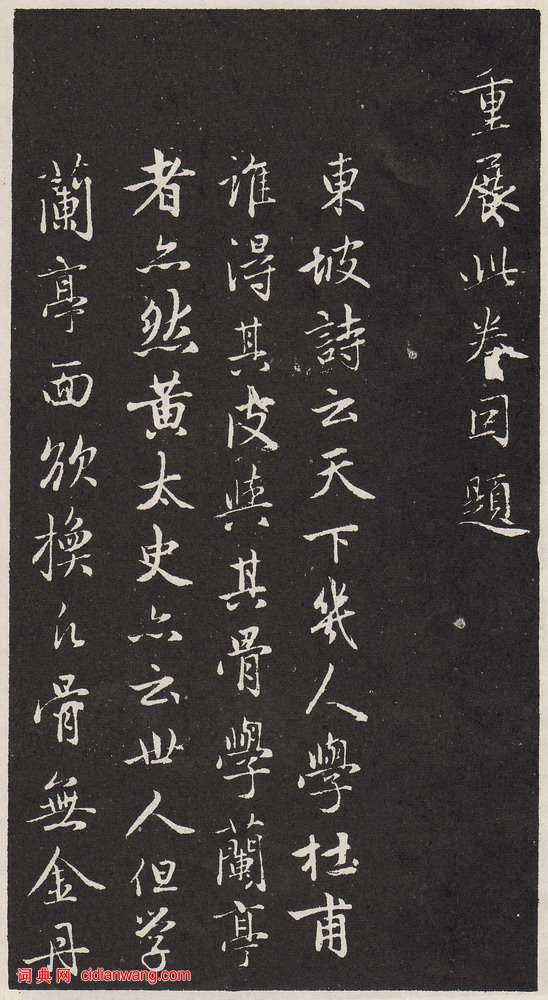 重展此卷因題
東坡詩云天下幾人學杜甫
誰得其皮與其骨學蘭亭
者亦然黃太史亦云世人但学
蘭亭面欲換凡骨無金丹
词典网 cidianwang.com